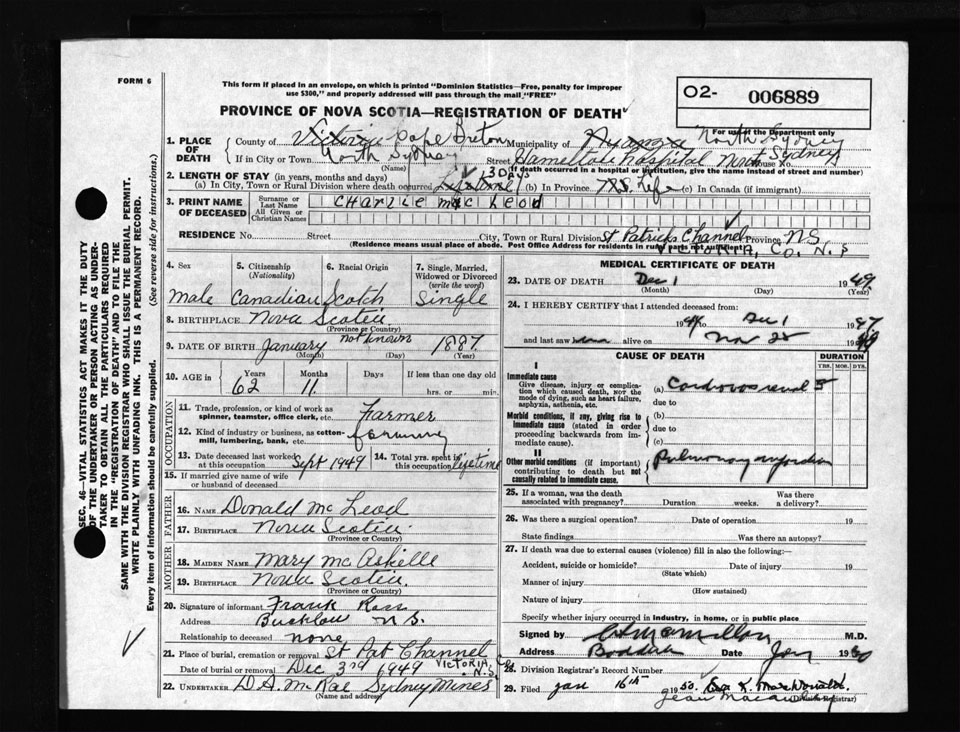 FORM 6
This form if placed in an envelope, on which is printed "Dominion Statistics—Free, penalty for improper
use $300," and properly addressed will pass through the mail "FREE"
PROVINCE OF NOVA SCOTIA—REGISTRATION OF DEATH
O2- 006889
For use of the Department only
1. PLACE OF DEATH
County of Victoria Cape Breton Municipality of North Sydney
If in City or Town North Sydney (Name) Street Hamilton Hospital North Sydney House No.
(If death occurred in a hospital or institution, give the name instead of street and number)
2. LENGTH OF STAY (in years, months and days)
(a) In City, Town or Rural Division where death occurred 3 Days (b) In Province Life (c) In Canada (if immigrant)
3. PRINT NAME OF DECEASED
Surname or Last Name
All Given or Christian Names
Charlie Mac Leod
RESIDENCE No. Street City, Town or Rural Division St Patricks Channel Province N.S.
(Residence means usual place of abode. Post Office Address for residents in rural parts not sufficient)
VICTORIA, Co. N.S
4. Sex
male
5. Citizenship (Nationality)
Canadian
6. Racial Origin
Scotch
7. Single, Married, Widowed or Divorced (write the word)
Single
8. BIRTHPLACE Nova Scotia
(Province or Country)
9. DATE OF BIRTH January not known 1887
(Month) (Day) (Year)
10. AGE in Years Months Days If less than one day old
62 11 hrs. or min.
OCCUPATION
11. Trade, profession, or kind of work as spinner, teamster, office clerk, etc. Farmer
12. Kind of industry or business, as cotton-mill, lumbering, bank, etc. farming
13. Date deceased last worked at this occupation Sept 1949
14. Total yrs. spent in this occupation Lifetime
15. If married give name of wife or husband of deceased
FATHER
16. NAME Donald Mc Leod
17. BIRTHPLACE Nova Scotia
(Province or Country)
MOTHER
18. MAIDEN NAME Mary Mc Askille
19. BIRTHPLACE Nova Scotia
(Province or Country)
20. Signature of informant Frank Ross
Address Bucklaw N S.
Relationship to deceased none
21. Place of burial, cremation or removal St Pat Channel
Date of burial or removal Dec 3rd 1949 VICTORIA, Co N.S.
22. UNDERTAKER D.A. McRae Sydney Mines
(Name and address)
MEDICAL CERTIFICATE OF DEATH
23. DATE OF DEATH Dec 1 1949
(Month) (Day) (Year)
24. I HEREBY CERTIFY that I attended deceased from:
19 to Dec 1 19
and last saw alive on Nov 28 19
CAUSE OF DEATH
DURATION
YRS. MOS. DYS.
I
Immediate cause
Give disease, injury or complication which caused death, not the mode of dying, such as heart failure, asphyxia, asthenia, etc.
(a) Cardiovasrenal 5
due to
Morbid conditions, if any, giving rise to immediate cause (stated in order proceeding backwards from immediate cause).
(b)
due to
(c)
II
Other morbid conditions (if important) contributing to death but not causally related to immediate cause.
Pulmonary
25. If a woman, was the death associated with pregnancy? Duration weeks. Was there a delivery?
26. Was there a surgical operation? Date of operation 19
State findings Was there an autopsy?
27. If death was due to external causes (violence) fill in also the following:—
Accident, suicide or homicide? Date of injury 19
(State which)
Manner of injury
(How sustained)
Nature of injury
Specify whether injury occurred in industry, in home, or in public place
Signed by M.D.
Address Baddeck Date Jan 1950
28. Division Registrar's Record Number
29. Filed Jan 16th 1950. Eva K. MacDonald.
Jean
(Division Registrar)
SEC. 46—VITAL STATISTICS ACT MAKES IT THE DUTY
OF THE UNDERTAKER OR PERSON ACTING AS UNDER-
TAKER TO OBTAIN ALL THE PARTICULARS REQUIRED
IN THE "REGISTRATION OF DEATH" AND TO FILE THE
SAME WITH THE DIVISION REGISTRAR WHO SHALL ISSUE THE BURIAL PERMIT.
WRITE PLAINLY WITH UNFADING INK. THIS IS A PERMANENT RECORD.
Every item of information should be carefully supplied. (See reverse side for instructions.)